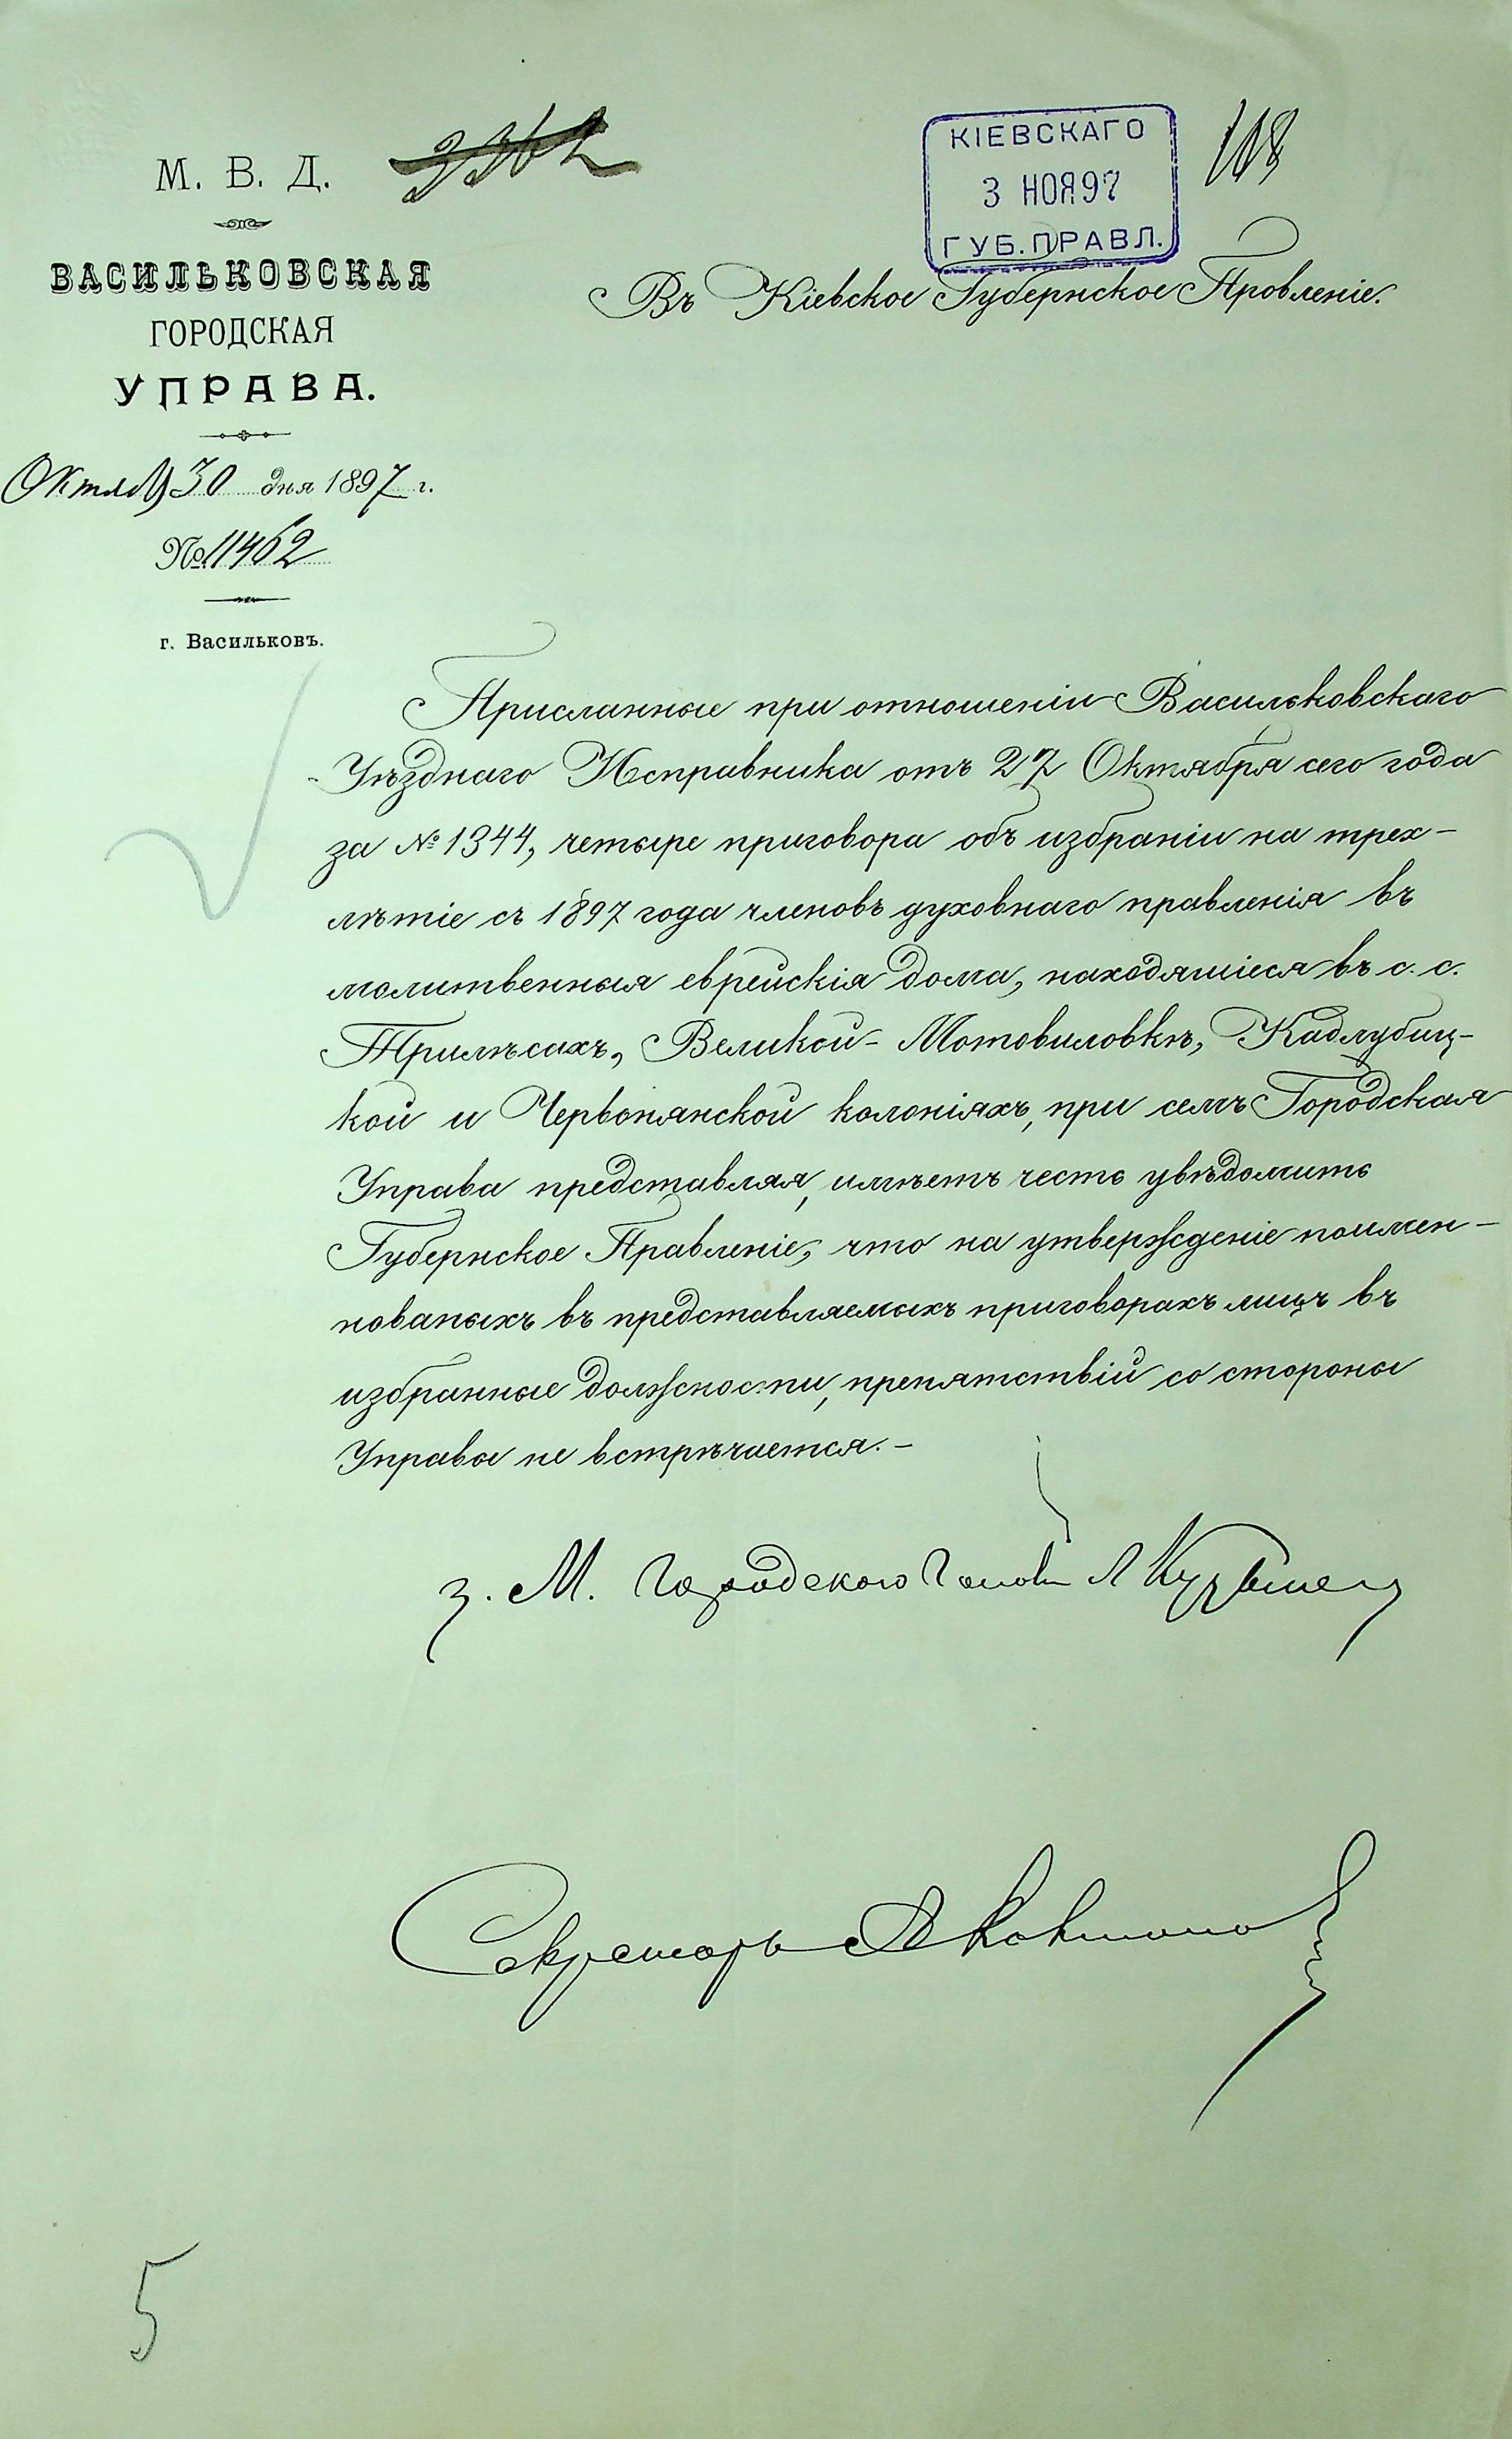 М. В. Д.
ВАСИЛЬКОВСКАЯ
ГОРОДСКАЯ
УПРАВА.
30 дня 1897 г.
№ 11462
г. Васильковъ.
КІЕВСКАГО
3 НОЯ 97
ГУБ. ПРАВЛ.
108
Въ Кіевское Губернское Провленіе.
Присланные при отношеніи Васильковскаго
Уѣзднаго Исправника отъ 27 Октября сего года
за № 1344, четыре приговора объ избраніи на трех-
лѣтіе съ 1897 года членовъ духовнаго правленія въ
молитвенныя еврейскія дома, находящіеся въ с. с.
Трилѣсахъ, Великой-Мотовиловкѣ, Кадлубиц-
кой и Червонянской колоніяхъ, при семъ Городская
Управа представляя, имѣетъ честь увѣдомить
Губернское Правленіе, что на утвержденіе поимен-
нованыхъ въ представляемыхъ приговорахъ лицъ въ
избранные должности, препятствій со стороны
Управы не встрѣчается.-
з. М. Городского Головы
Секретарь
5